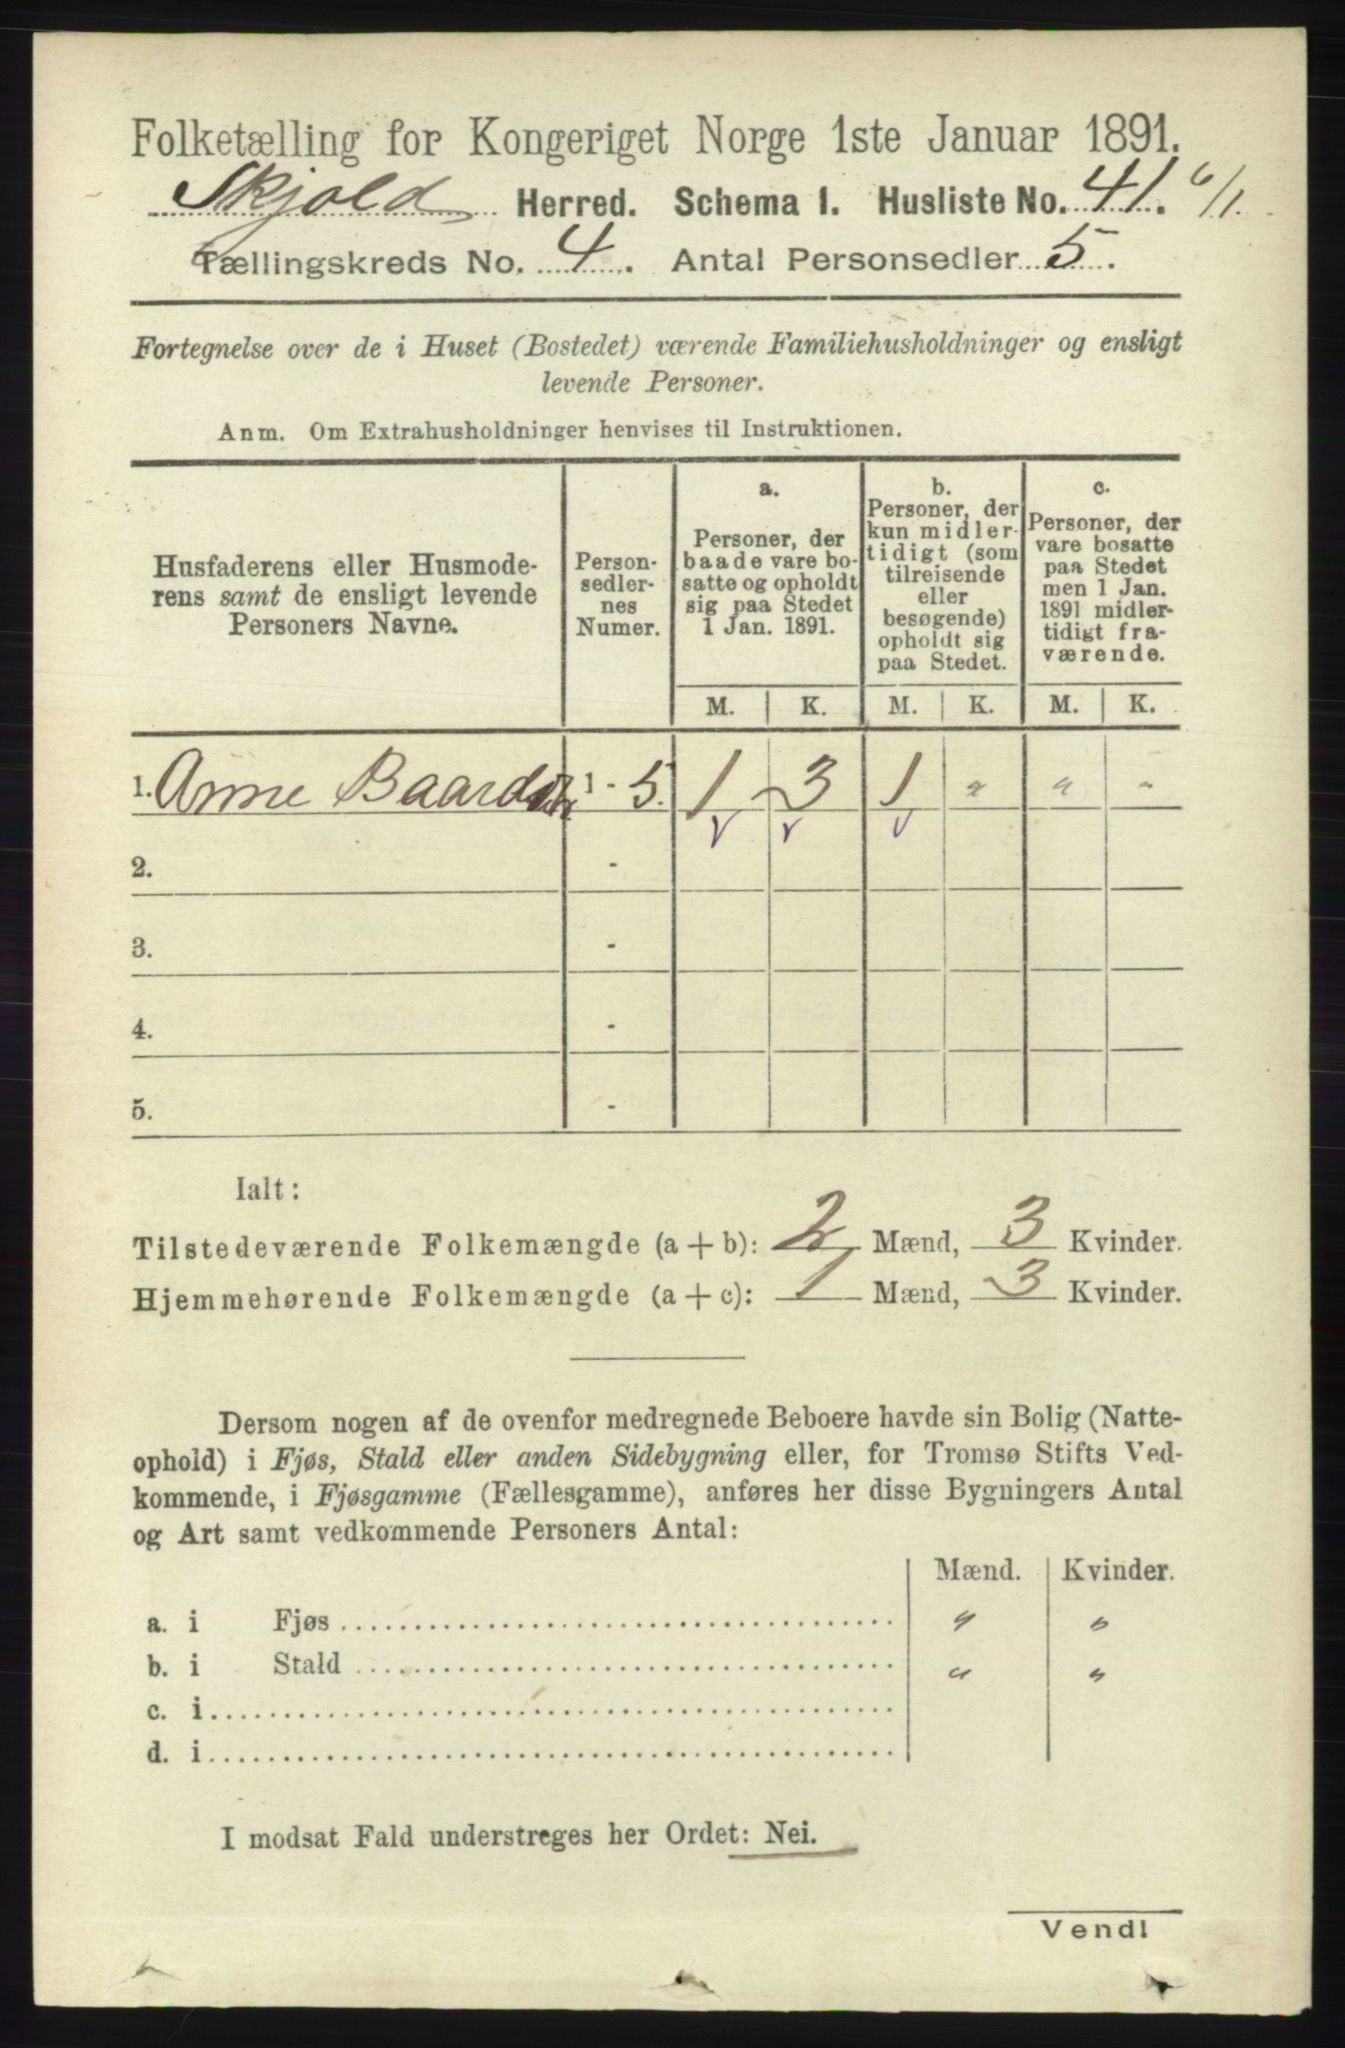 Folketælling for Kongeriget Norge 1ste Januar 1891.
Skjold Herred. Schema 1. Husliste No. 41. 6/1.
Tællingskreds No. 4. Antal Personsedler 5.
Fortegnelse over de i Huset (Bostedet) værende Familiehusholdninger og ensligt
levende Personer.
Anm. Om Extrahusholdninger henvises til Instruktionen.
Husfaderens eller Husmode-
rens samt de ensligt levende
Personers Navne.
Person-
sedler-
nes
Numer.
a.
Personer, der
baade vare bo-
satte og opholdt
sig paa Stedet
1 Jan. 1891.
b.
Personer, der
kun midler-
tidigt (som
tilreisende
eller
besøgende)
opholdt sig
paa Stedet.
c.
Personer, der
vare bosatte
paa Stedet
men 1 Jan.
1891 midler-
tidigt fra-
værende.
M. K. M. K. M. K.
1. Anne Baardsdtr 1 - 5. 1 3 1 " " "
v v v
2. -
3. -
4. -
5. -
Ialt:
Tilstedeværende Folkemængde (a + b): 2 Mænd, 3 Kvinder.
Hjemmehørende Folkemængde (a + c): 1 Mænd, 3 Kvinder.
Dersom nogen af de ovenfor medregnede Beboere havde sin Bolig (Natte-
ophold) i Fjøs, Stald eller anden Sidebygning eller, for Tromsø Stifts Ved-
kommende, i Fjøsgamme (Fællesgamme), anføres her disse Bygningers Antal
og Art samt vedkommende Personers Antal:
Mænd. Kvinder.
a. i Fjøs " "
b. i Stald " "
c. i
d. i
I modsat Fald understreges her Ordet: Nei.
Vend!